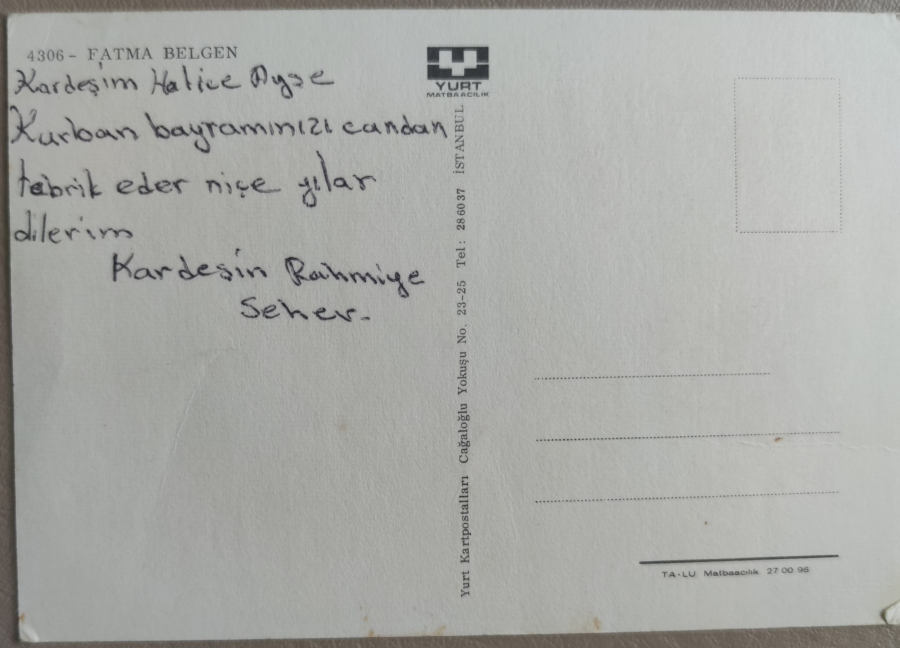 4306 - FATMA BELGEN
Kardeşim Hatice Ayşe
Kurban bayramınızı candan
tebrik eder niçe yılar
dilerim
Kardeşin Rahmiye
Seher.
YURT
MATBAACILIK
Yurt Kartpostalları Cağaloğlu Yokuşu No. 23-25 Tel: 286037 İSTANBUL
TA-LU Matbaacılık 27 00 96